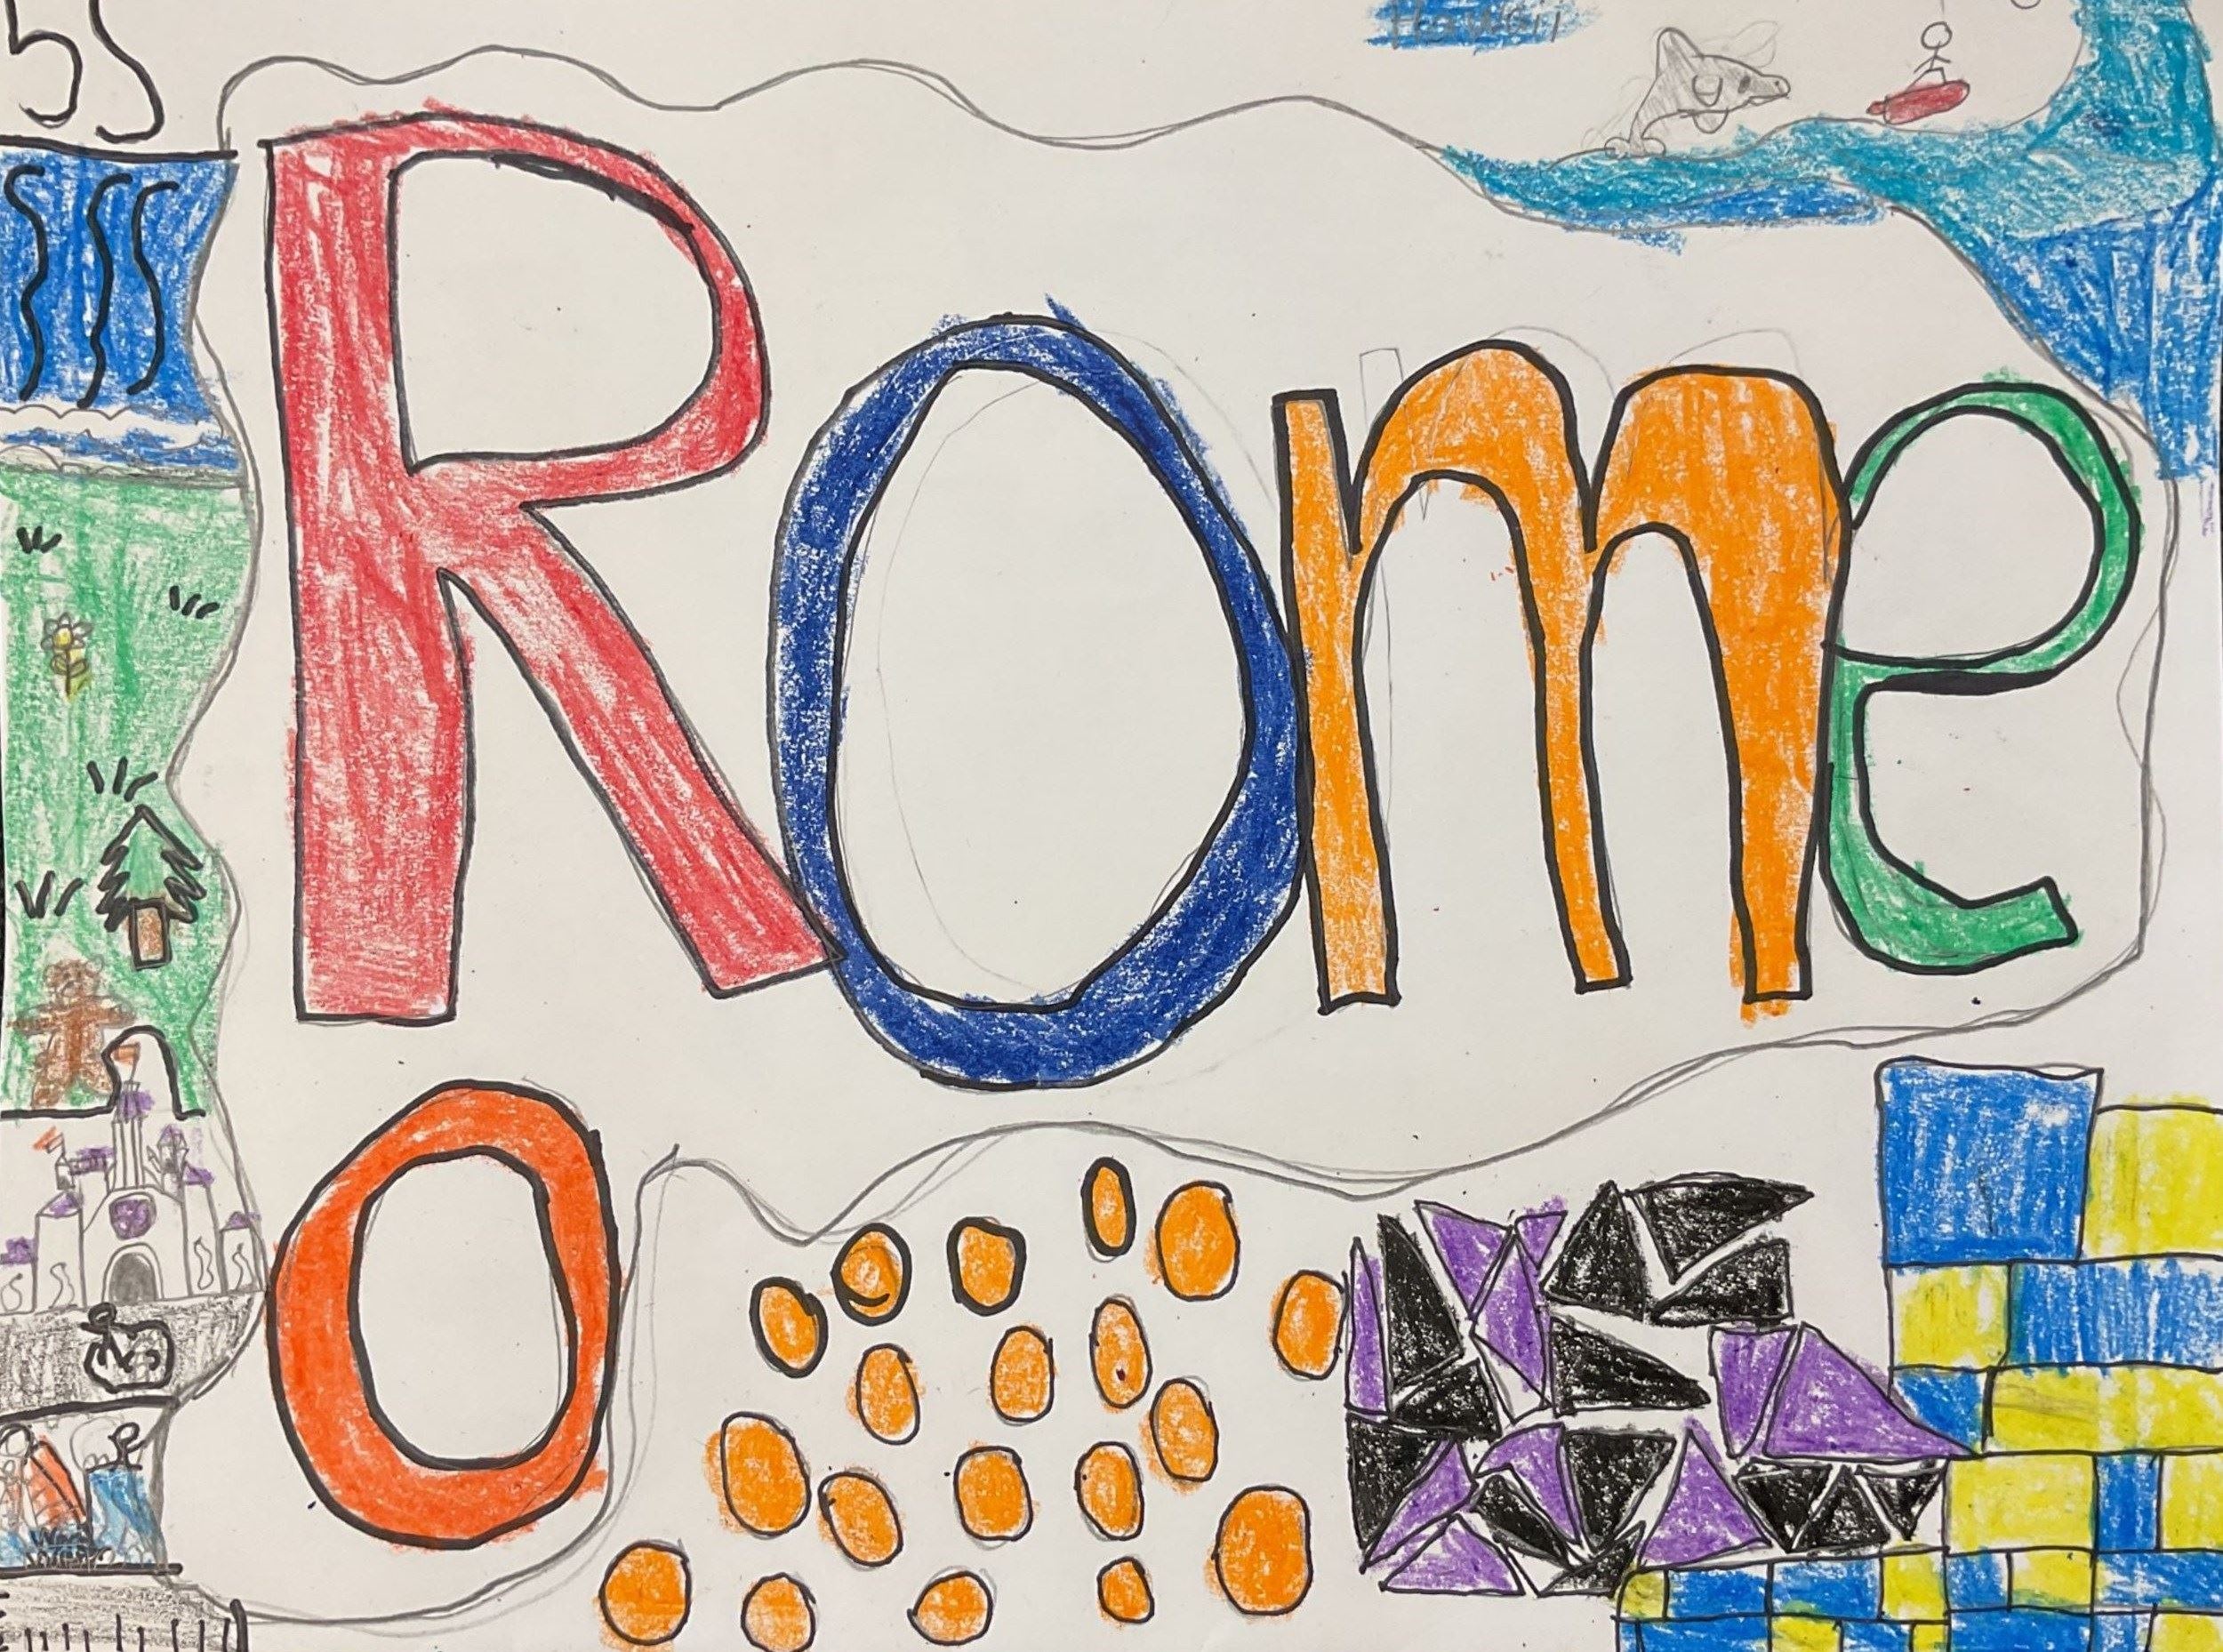 Hawaii
Rome
o